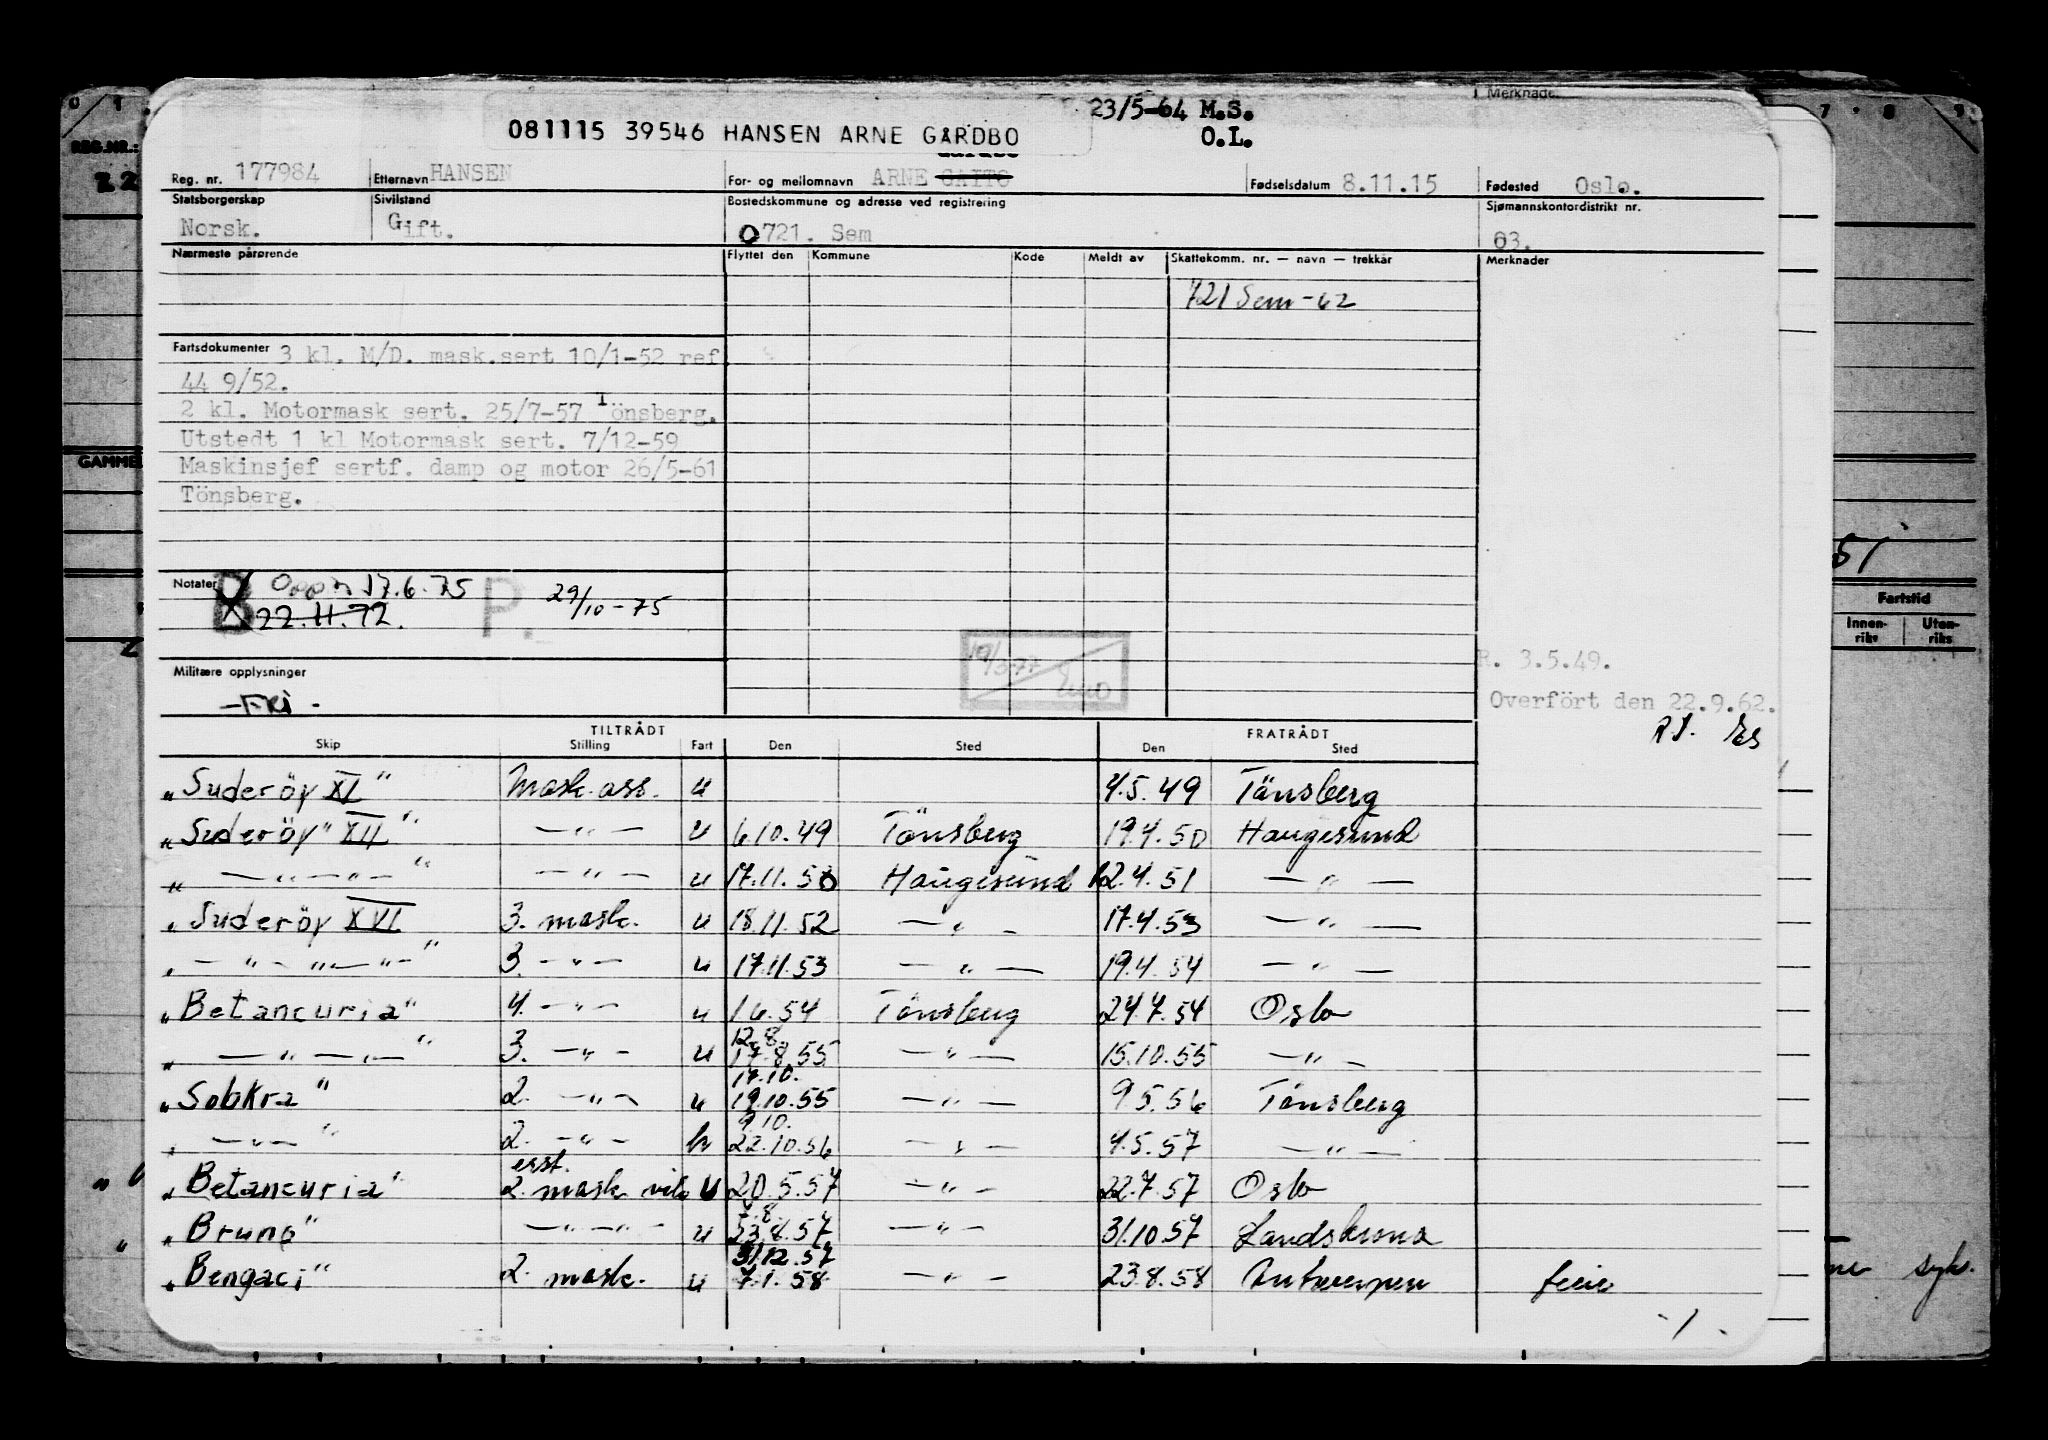 23/5-64 M.S.
O.L.
081115 39546 HANSEN ARNE GARDBO
Merknade
REG.NR.:
Reg. nr. 177984 Etternavn HANSEN For- og mellomnavn ARNE GAITO Fødselsdatum 8.11.15 Fødested Oslo.
Statsborgerskap Norsk. Sivilstand Gift. Bostedskommune og adresse ved registrering 0721. Sem Sjømannskontordistrikt nr. 03.
Nærmeste pårørende Flyttet den Kommune Kode Meldt av Skattekomm. nr. — navn — trekkår Merknader
721 Sem-62
Fartsdokumenter 3 kl. M/D. mask.sert 10/1-52 ref
44 9/52.
2 kl. Motormask sert. 25/7-57 Tönsberg.
Utstedt 1 kl Motormask sert. 7/12-59
Maskinsjef sertf. damp og motor 26/5-61
Tönsberg.
GAMME
Notater B 17.6.75 P. 29/10-75
22.11.72.
Fartstid
Innen-riks Uten-riks
Militære opplysninger
-FRI-
R. 3.5.49.
Overfört den 22.9.62.
TILTRÅDT FRATRÅDT
Skip Stilling Fart Den Sted Den Sted
"Suderöy XI" Mask. ass. u 4.5.49 Tönsberg
"Suderöy" XII" —"— u 6.10.49 Tönsberg 19.4.50 Haugesund
" —"—"— " —"— u 17.11.50 Haugesund 12.4.51 —"—
"Suderöy XVI 3. mask. u 18.11.52 —"— 17.4.53 —"—
" —"—"—"— " 3. —"— u 17.11.53 —"— 19.4.54 —"—
"Betancuria" 4. —"— u 1.6.54 Tönsberg 24.7.54 Oslo
12.8.
" —"—"— " 3. —"— u 17.8.55 —"— 15.10.55 —"—
17.10.
"Solskra" 2. —"— u 19.10.55 —"— 9.5.56 Tönsberg
9.10.
" —"— " 2. —"— h 22.10.56 —"— 4.5.57 —"—
erst.
"Betancuria" 2. mask vik u 20.5.57 —"— 22.7.57 Oslo
"Bruno" —"—"— u 23.8.57 —"— 31.10.57 Landskrona
31.12.57
"Bengaci" 2. mask. u 7.1.58 —"— 23.8.58 Antwerpen ferie
-1-